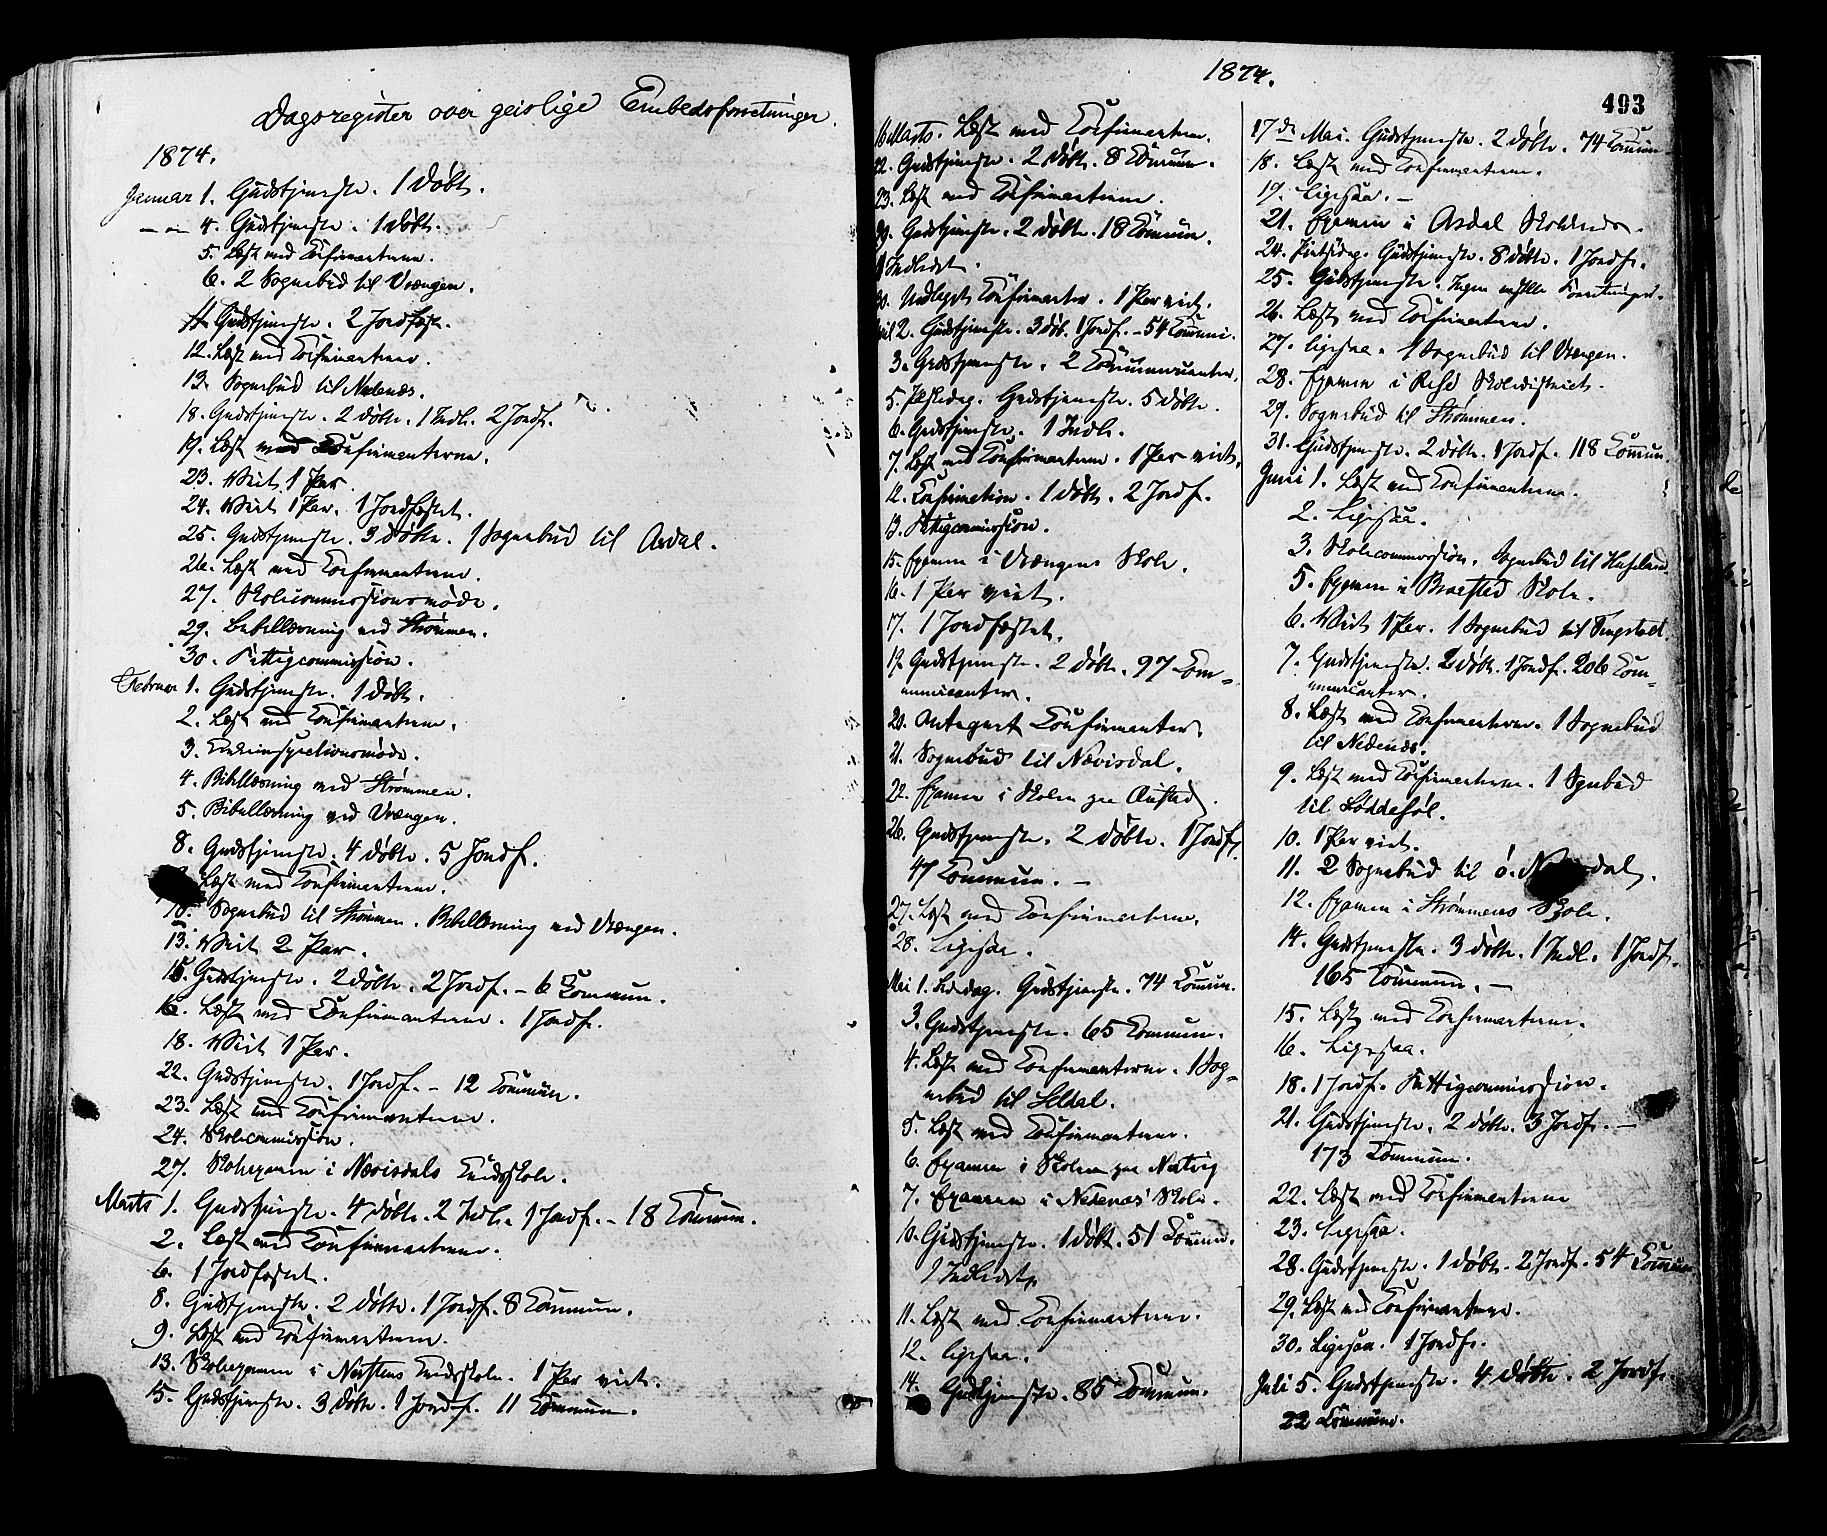 Dagsregister over geislige Embedsforretninger.
1874.
Januar 1. Gudstjeneste. 1 døbt.
— „ — 4. Gudstjeneste. 1 døbt.
5. Læst med Confirmanterne.
6. 2 Sognebud til Vrængen.
11. Gudstjeneste. 2 Jordfæst.
12. Læst med Confirmanterne.
13. Sognebud til Nedenæs.
18. Gudstjeneste. 2 døbte. 1 Indl. 2 Jordf.
19. Læst med Confirmanterne.
23. Viet 1 Par.
24. Viet 1 Par. 1 Jordfæstet.
25. Gudstjeneste. 3 døbte. 1 Sognebud til Asdal.
26. Læst med Confirmanterne.
27. Skolecommissionsmøde.
29. Bibellæsning ved Strømmen.
30. Fattigcommission.
Februar 1. Gudstjeneste. 1 døbt.
2. Læst med Confirmanterne.
3.
4. Bibellæsning ved Strømmen.
5. Bibellæsning ved Vrængen.
8. Gudstjeneste. 4 døbte. 5 Jordf.
Læst med Confirmanterne.
10. Sognebud til Strømmen. Bibellæsning ved Vrængen.
13. Viet 2 Par.
15. Gudstjeneste. 2 døbte. 2 Jordf. – 6 Commun.
16. Læst med Confirmanterne. 1 Jordf.
18. Viet 1 Par.
22. Gudstjeneste. 1 Jordf. – 12 Commun.
23. Læst med Confirmanterne.
24. Skolecommission.
27. Skoleexamen i Nævisdals Kredsskole.
Marts 1. Gudstjeneste. 4 døbte. 2 Indl. 1 Jordf. – 18 Commun.
2. Læst med Confirmanterne.
6. 1 Jordfæstet.
8. Gudstjeneste. 2 døbte. 1 Jordf. 8 Commun.
9. Læst med Confirmanterne.
13. Skoleexamen i Kredsskole. 1 Par viet.
15. Gudstjeneste. 3 døbte. 1 Jordf. 11 Commun.
1874.
493
16 Marts. Læst med Confirmanterne.
22. Gudstjeneste. 2 døbte. 8 Commun.
23. Læst med Confirmanterne.
29. Gudstjeneste. 2 døbte. 18 Commun.
1 Indledet.
30. Udlagt Confirmanter. 1 Par viet.
April 2. Gudstjeneste. 3 døb. 1 Jordf. – 54 Communi.
3. Gudstjeneste. 2 Communicanter.
5. Paaskedag. Gudstjeneste. 5 døbte.
6. Gudstjeneste. 1 Indl.
7. Læst med Confirmanterne. 1 Par viet.
12. Confirmation. 1 døbt. 2 Jordf.
13. Fattigcommission.
15. Examen i Vrængens Skole.
16. 1 Par viet.
17. 1 Jordfæstet.
19. Gudstjeneste. 2 døbte. 97 Com=
municanter.
20. Antegnet Confirmanter.
21. Sognebud til Nævisdal.
22. Examen i Skolen paa
26. Gudstjeneste. 2 døbte. 1 Jordf.
47 Commun. –
27. Læst med Confirmanterne.
28. Ligesaa.
Mai 1. Bededag. Gudstjeneste. 74 Commun.
3. Gudstjeneste. 65 Commun.
4. Læst med Confirmanterne. 1 Sog=
nebud til Seldal.
5. Læst med Confirmanterne.
6. Examen i Skolen paa Natvig
7. Examen i Nedenæs Skole.
10. Gudstjeneste. 1 døbt. 51 Commun.
1 Indledet.
11. Læst med Confirmanterne.
12. Ligesaa.
14. Gudstjeneste. 85 Commun.
17de Mai. Gudstjeneste. 2 døbte. 74 Commun
18. Læst med Confirmanterne.
19. Ligesaa. –
21. Examen i Asdal
24. Pintsedag. Gudstjeneste. 8 døbte. 1 Jordf.
25. Gudstjeneste. Ingen Forretninger.
26. Læst med Confirmanterne.
27. Ligesaa. 1 Sognebud til Vrængen.
28. Examen i Skoledistrict.
29. Sognebud til Strømmen.
31. Gudstjeneste. 2 døbte. 1 Jordf. 118 Commun.
Juni 1. Læst med Confirmanterne.
2. Ligesaa.
3. Skolecommission. Sognebud til
5. Examen i Braastad Skole.
6. Viet 1 Par. 1 Sognebud til
7. Gudstjeneste. 2 døbte. 1 Jordf. 206 Com=
municanter.
8. Læst med Confirmanterne. 1 Sognebud
til Nedenæs.
9. Læst med Confirmanterne. 1 Sognebud
til Løddesøl.
10. 1 Par viet.
11. 2 Sognebud til
12. Examen i Strømmens Skole.
14. Gudstjeneste. 3 døbte. 1 Indl. 1 Jordf.
165 Commun. –
15. Læst med Confirmanterne.
16. Ligesaa.
18. 1 Jordf. Fattigcommission.
21. Gudstjeneste. 2 døbte. 3 Jordf. –
173 Commun.
22. Læst med Confirmanterne
23. Ligesaa.
28. Gudstjeneste. 1 døbt. 2 Jordf. 54 Commun
29. Læst med Confirmanterne.
30. Ligesaa. 1 Jordf.
Juli 5. Gudstjeneste. 4 døbte. 2 Jordf.
22 Commun.